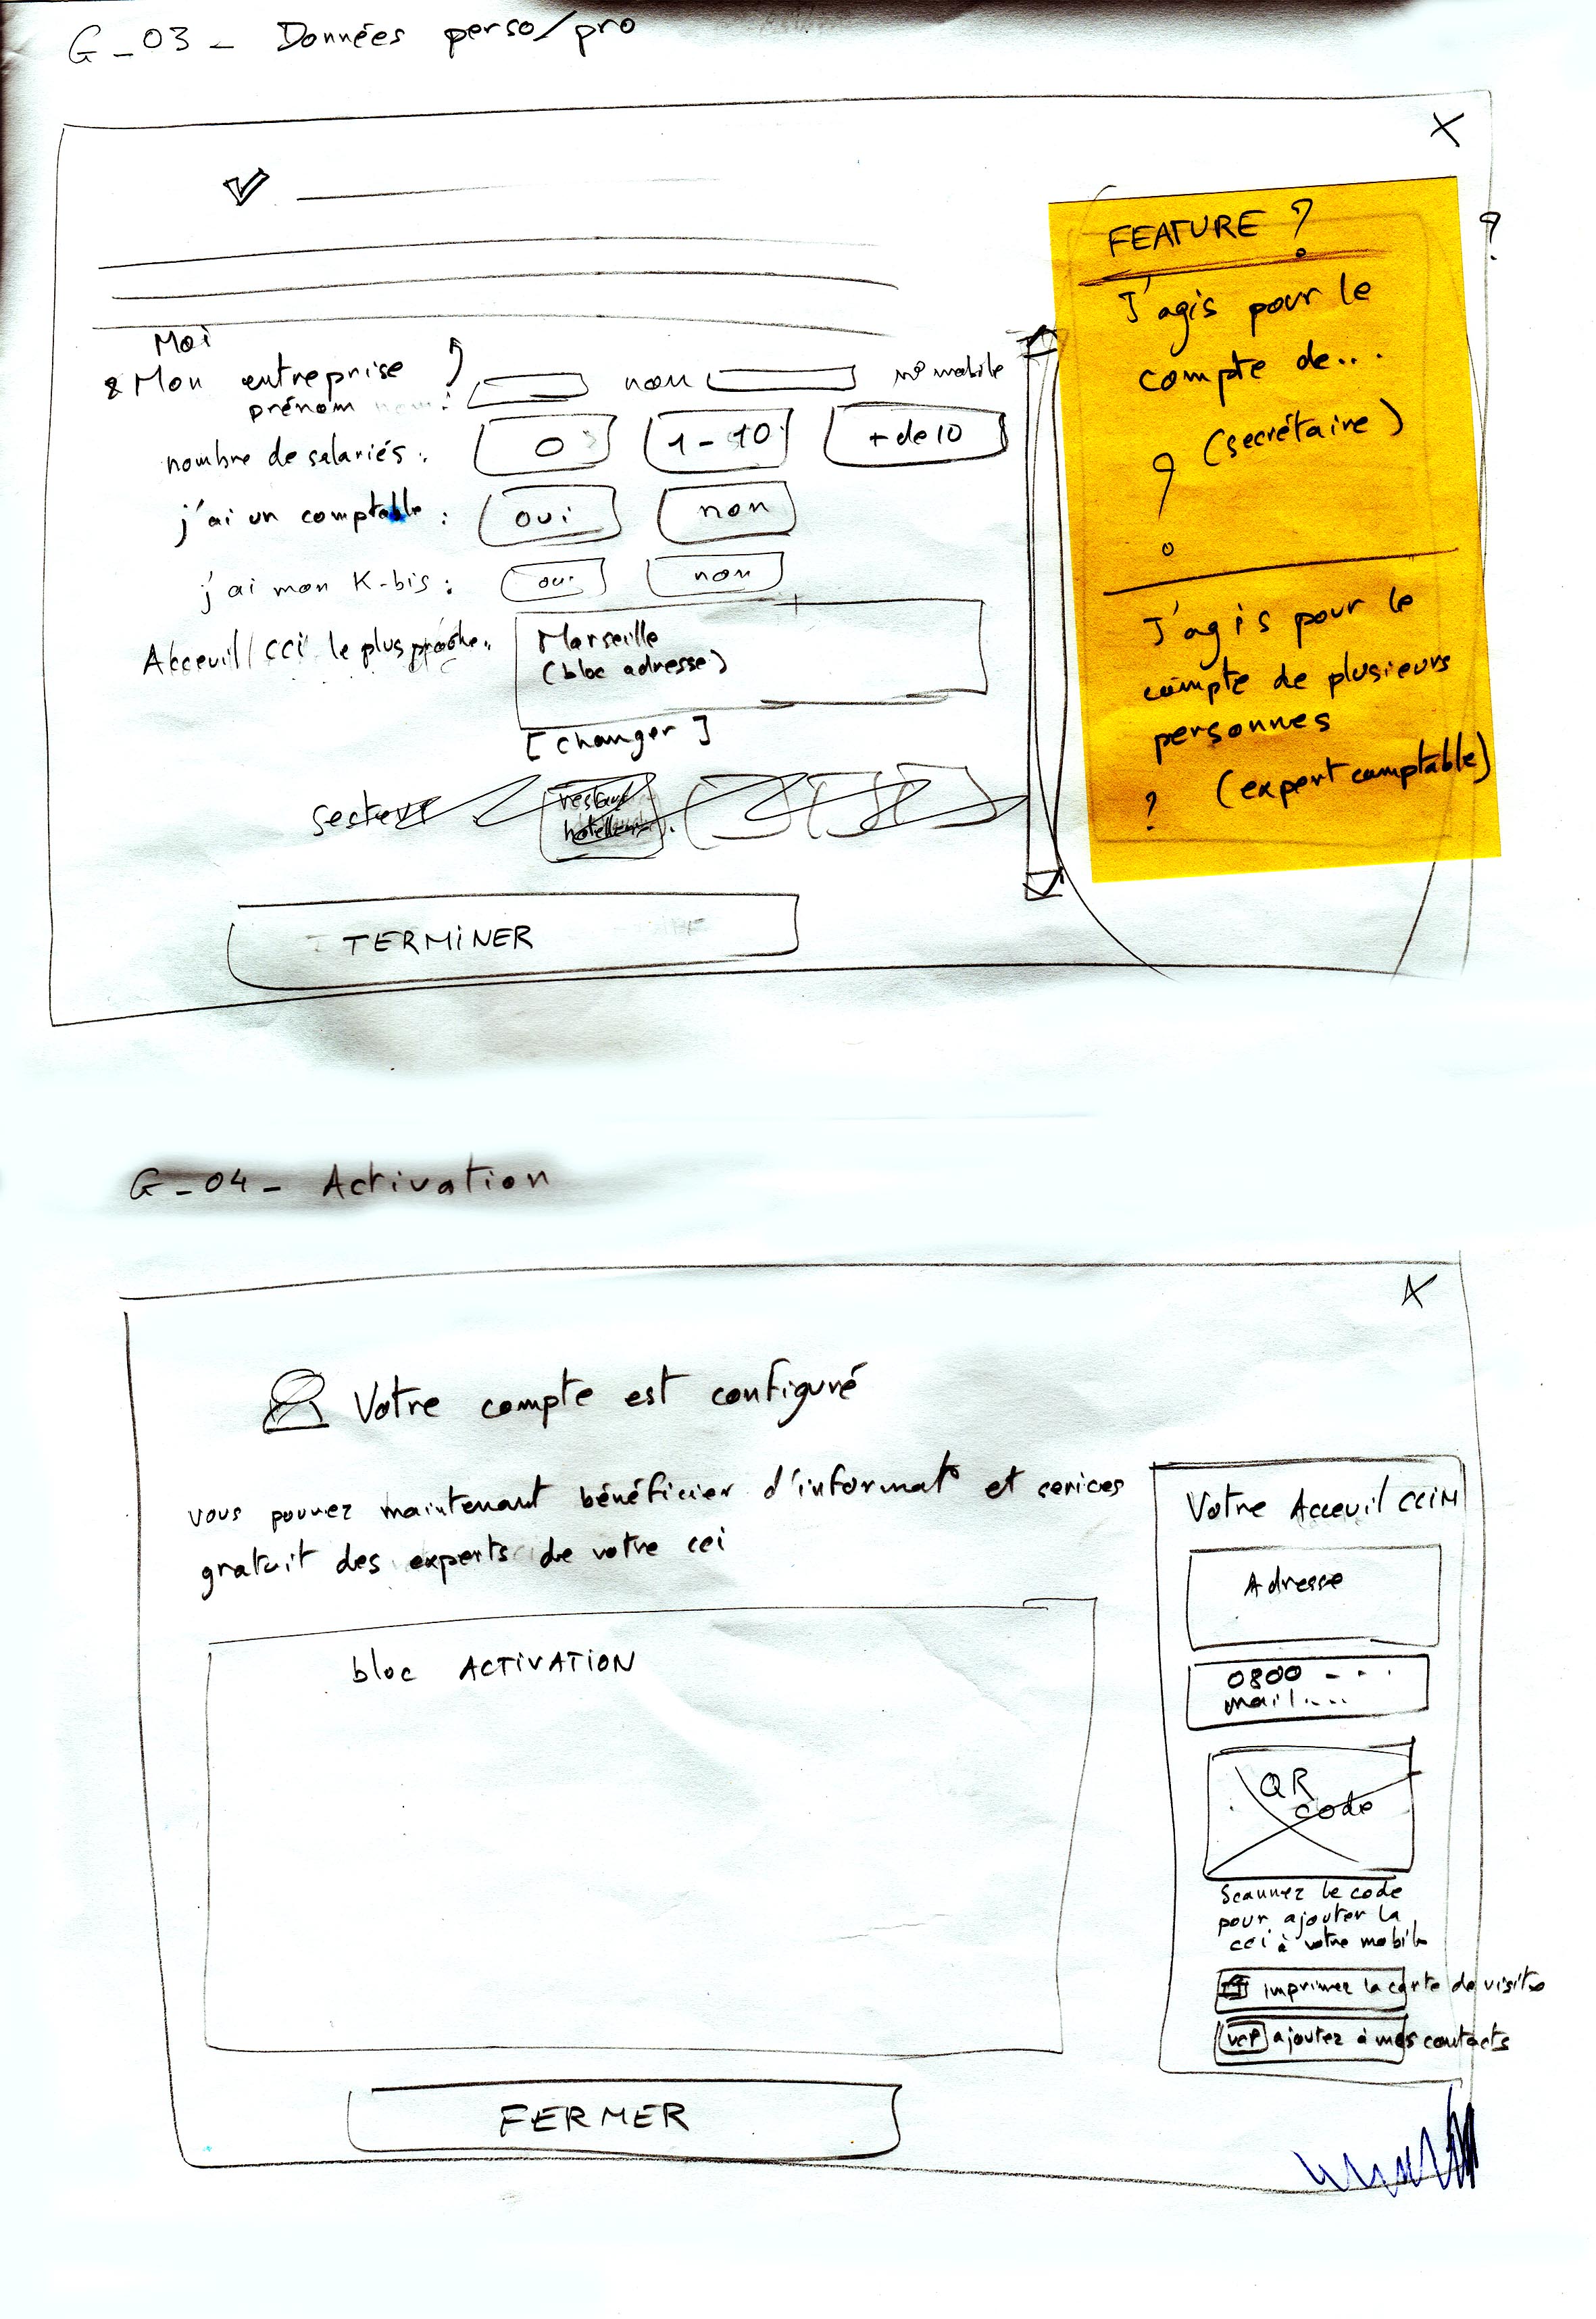 G_03_ Données perso/pro
X
?
FEATURE ?
J'agis pour le
compte de...
(secrétaire)
?
J'agis pour le
compte de plusieurs
personnes
? (expert comptable)
Moi
& Mon entreprise ?
prénom : nom n° mobile
nombre de salariés : 0 1-10 + de 10
j'ai un comptable : oui non
j'ai mon K-bis : oui non
Acceuil/CCI le plus proche : Marseille
(bloc adresse)
[changer]
secteur restau
hotellerie
TERMINER
G_04_ Activation
X
Votre compte est configuré
vous pouvez maintenant bénéficier d'informat° et services
gratuit des experts de votre cci
bloc ACTIVATION
Votre Acceuil CCIM
Adresse
0800 - - -
mail....
QR
code
Scannez le code
pour ajouter la
cci à votre mobile
imprimez la carte de visite
vcf ajoutez à mes contacts
FERMER